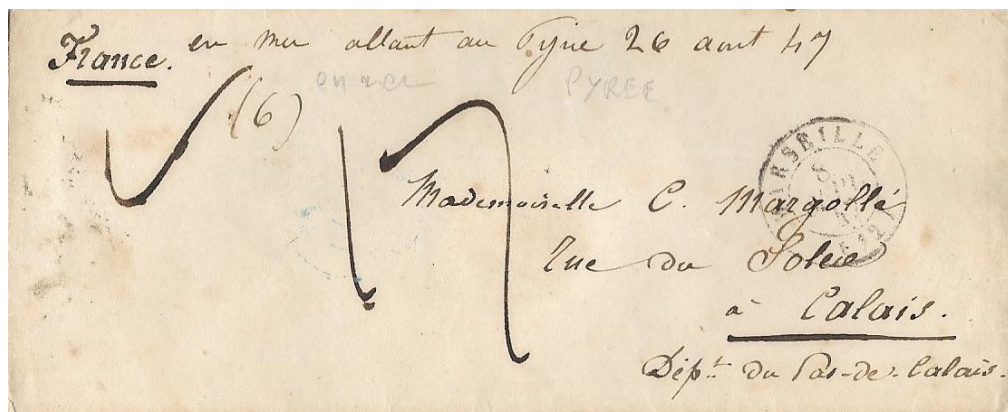 France. en mer allant au Pyrée 26 aout 47
en mer PYREE
(6)
17
MARSEILLE
Mademoiselle C. Margollé
Rue du Soleil
à Calais.
Dépt. du Pas-de-Calais.